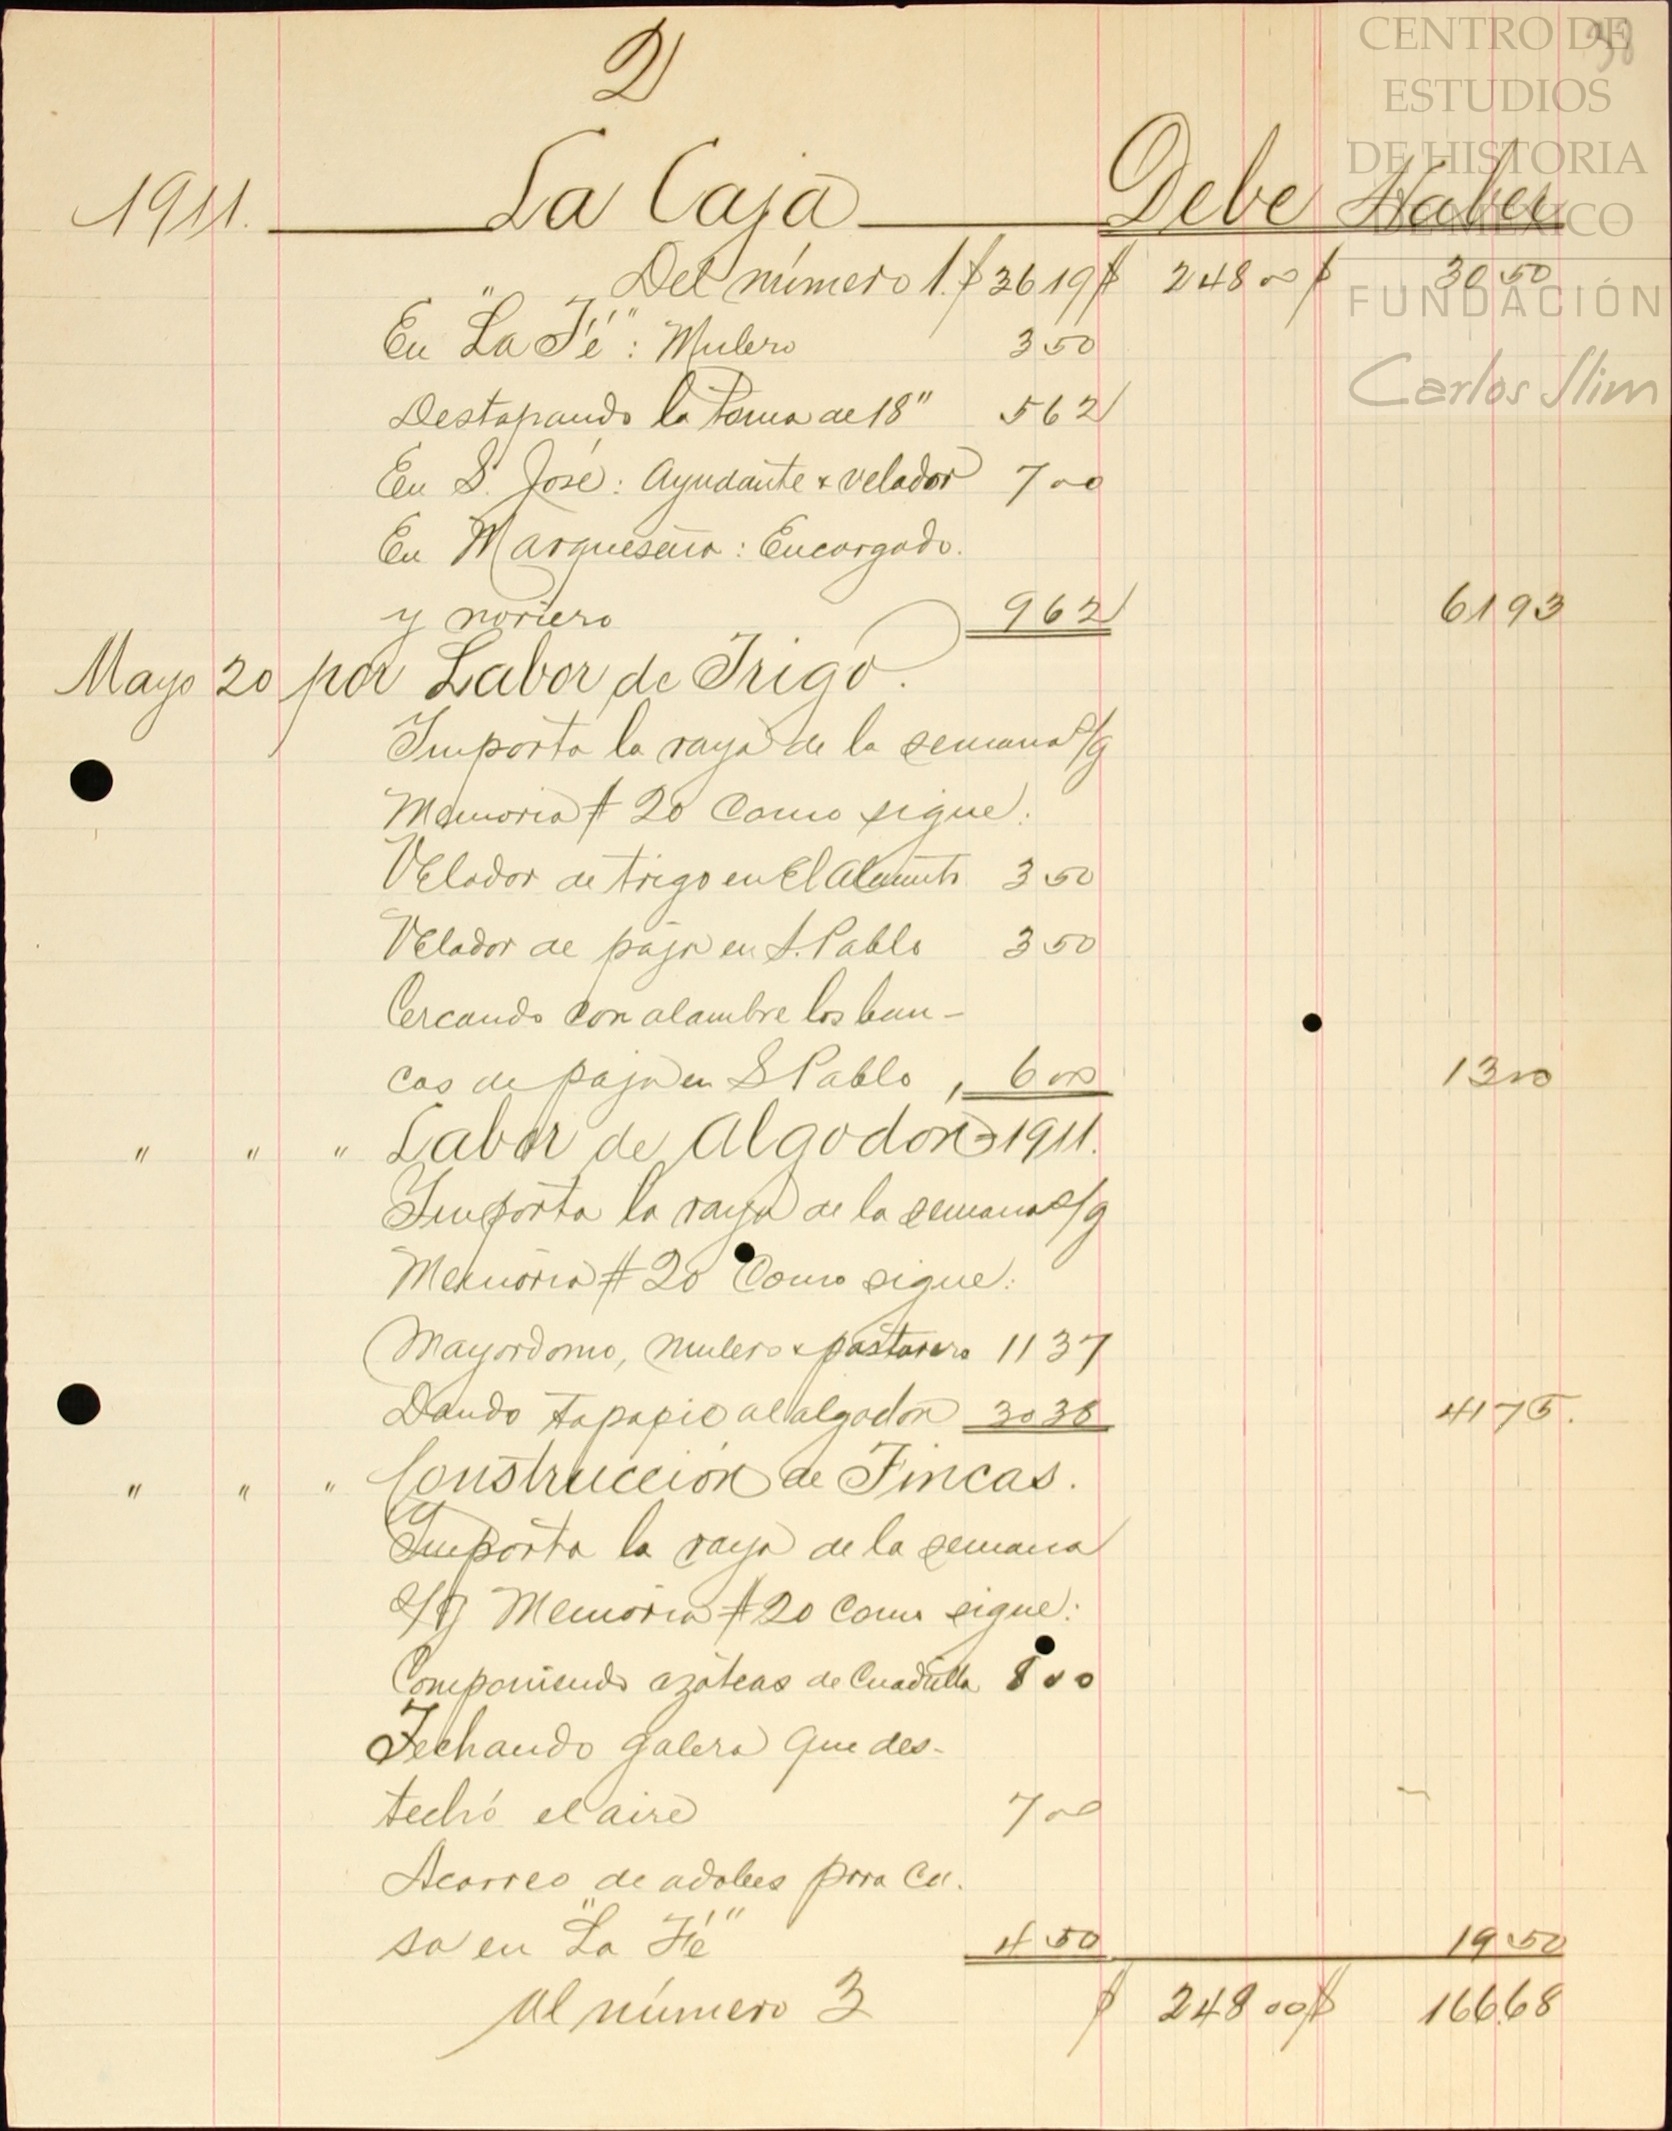 2
38
CENTRO DE
ESTUDIOS
DE HISTORIA
DE MÉXICO
FUNDACIÓN
Carlos Slim
1911. La Caja Debe Haber
Del número 1. $ 36 19 $ 248 00 $ 30 50
En "La Fé": Mulero 3 50
Destapando la toma de 18" 5 62
En S. José: Ayudante & velador 7 00
En Marqueseña: Encargado.
y noriero 9 62 61 93
Mayo 20 por Labor de Trigo.
Importa la raya de la semana s/g
Memoria # 20 como sigue:
Velador de trigo en El 3 50
Velador de paja en S. Pablo 3 50
Cercando con alambre los ban-
cos de paja en S Pablo, 6 00 13 00
" " " Labor de Algodon 1911.
Importa la raya de la semana s/g
Memoria # 20 Como sigue:
Mayordomo, mulero & pastorero 11 37
Dando tapapié al algodon 30 38 41 75.
" " " Construccion de Fincas.
Importa la raya de la semana
s/g Memoria # 20 como sigue:
Componiendo azoteas de Cuadrilla 8 00
Techando galera que des-
techó el aire 7 00
Acarreo de adobes para ca.
sa en "La Fé" 4 50 19 50
Al número 3 $ 248 00 $ 166.68